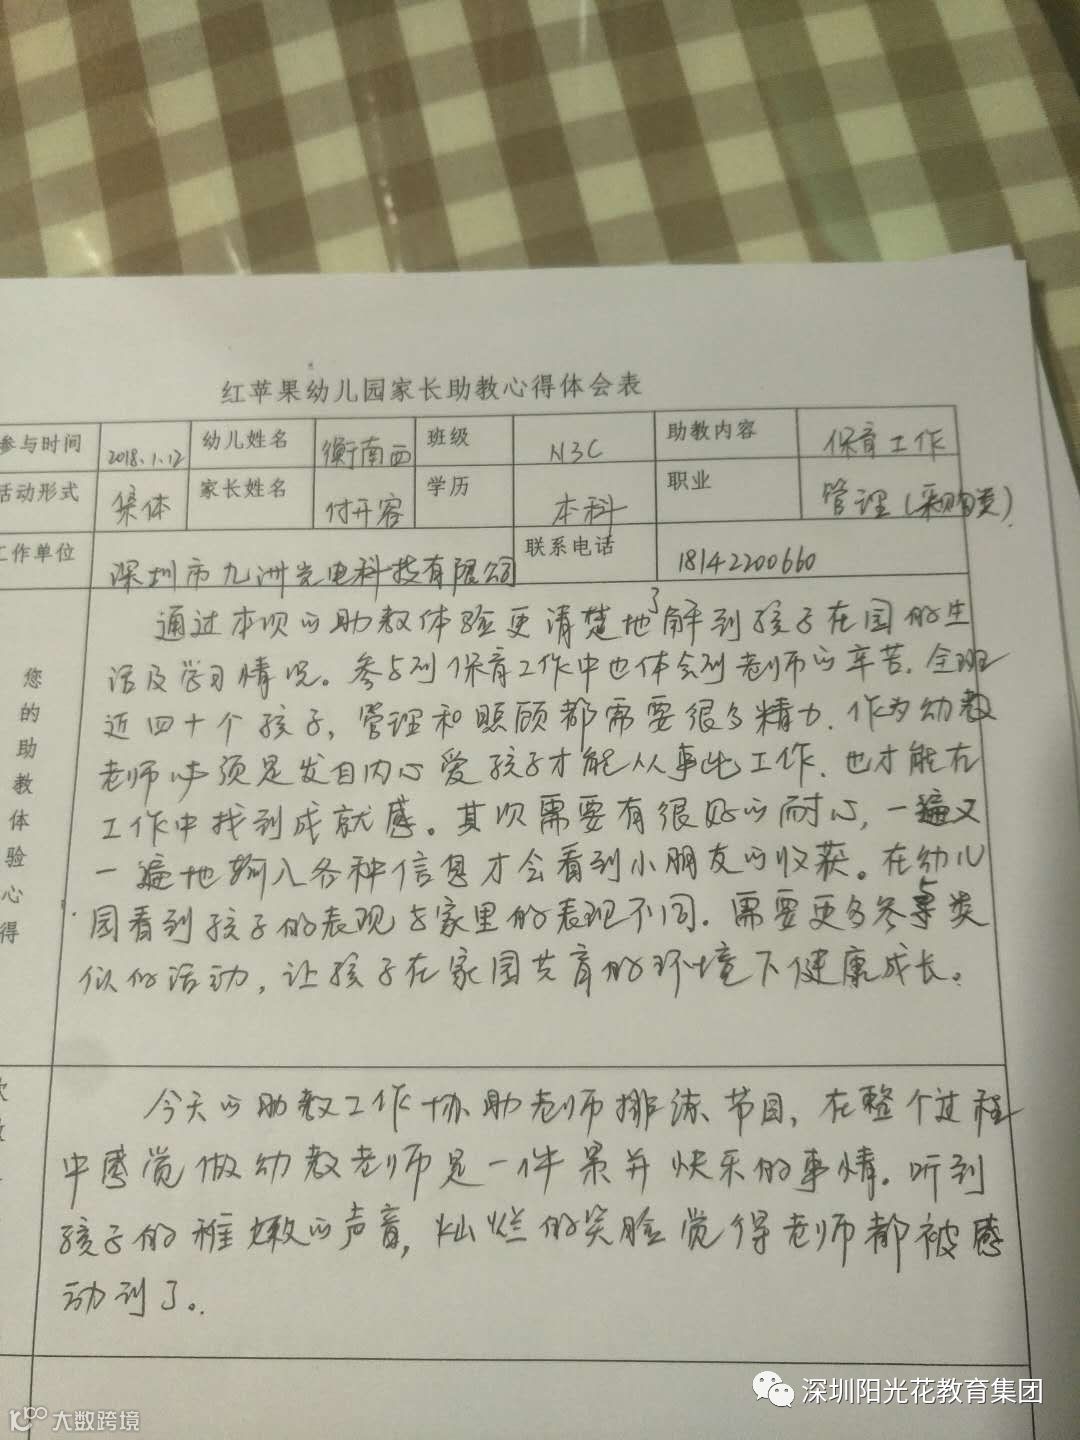 红苹果幼儿园家长助教心得体会表
参与时间 2018.1.12 幼儿姓名 衡南西 班级 N3C 助教内容 保育工作
活动形式 集体 家长姓名 付开容 学历 本科 职业 管理(采购类)
工作单位 深圳市九洲光电科技有限公司 联系电话 18142200660
您的助教体验心得
通过本次的助教体验更清楚地了解到孩子在园的生
活及学习情况。参与到保育工作中也体会到老师的辛苦.全班
近四十个孩子,管理和照顾都需要很多精力.作为幼教
老师必须是发自内心爱孩子才能从事此工作.也才能在
工作中找到成就感。其次需要有很好的耐心,一遍又
一遍地输入各种信息才会看到小朋友的收获。在幼儿
园看到孩子的表现与家里的表现不同.需要更多参与类
似的活动,让孩子在家园共育的环境下健康成长。
今天的助教工作协助老师排练节目,在整个过程
中感觉做幼教老师是一件累并快乐的事情。听到
孩子的稚嫩的声音,灿烂的笑脸觉得老师都被感
动到了。
深圳阳光花教育集团
大数跨境